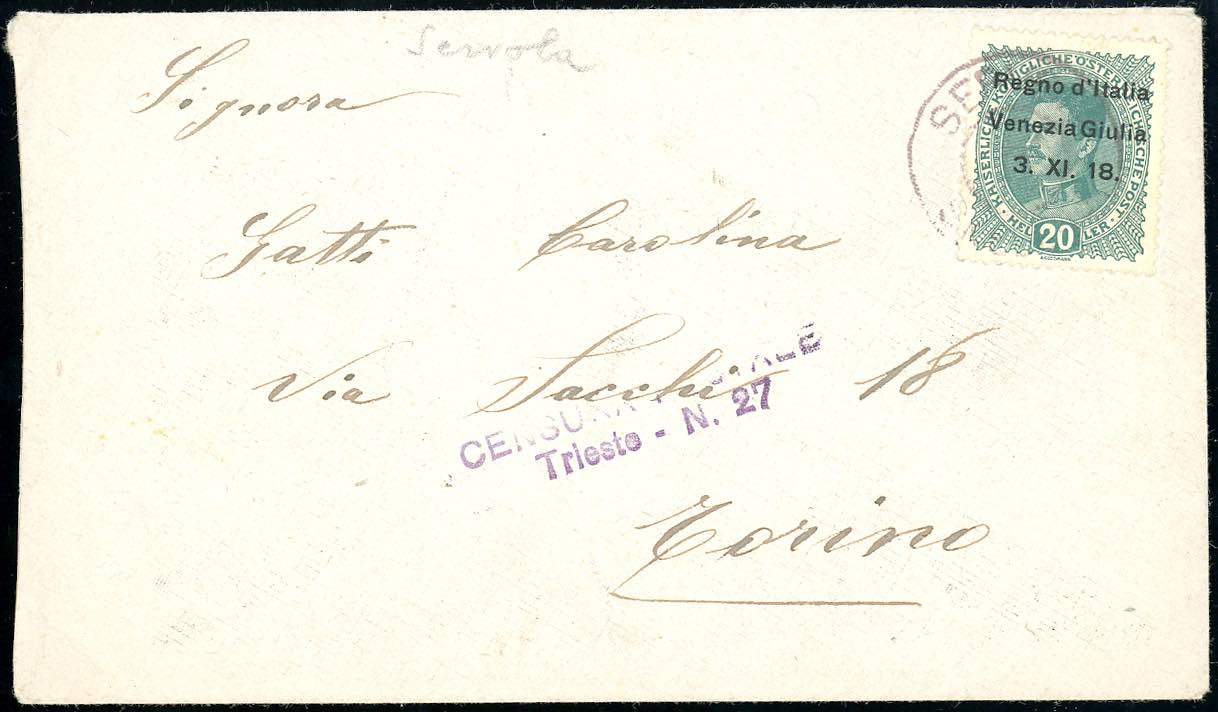 Servola
Signora
Gatti Carolina
Via Sacchi 18
Torino
CENSURA POSTALE
Trieste - N. 27
SER
KAISERLICHE KÖNIGLICHE ÖSTERREICHISCHE POST
Regno d'Italia
Venezia Giulia
3. XI. 18.
HELLER
20